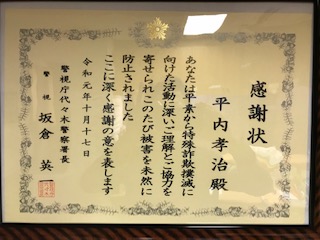 感謝状
平内孝治殿
あなたは平素から特殊詐欺撲滅に
向けた活動に深いご理解とご協力を
寄せられこのたび被害を未然に
防止されました
ここに深く感謝の意を表します
令和元年十月十七日
警視庁代々木警察署長
警視 坂倉英一